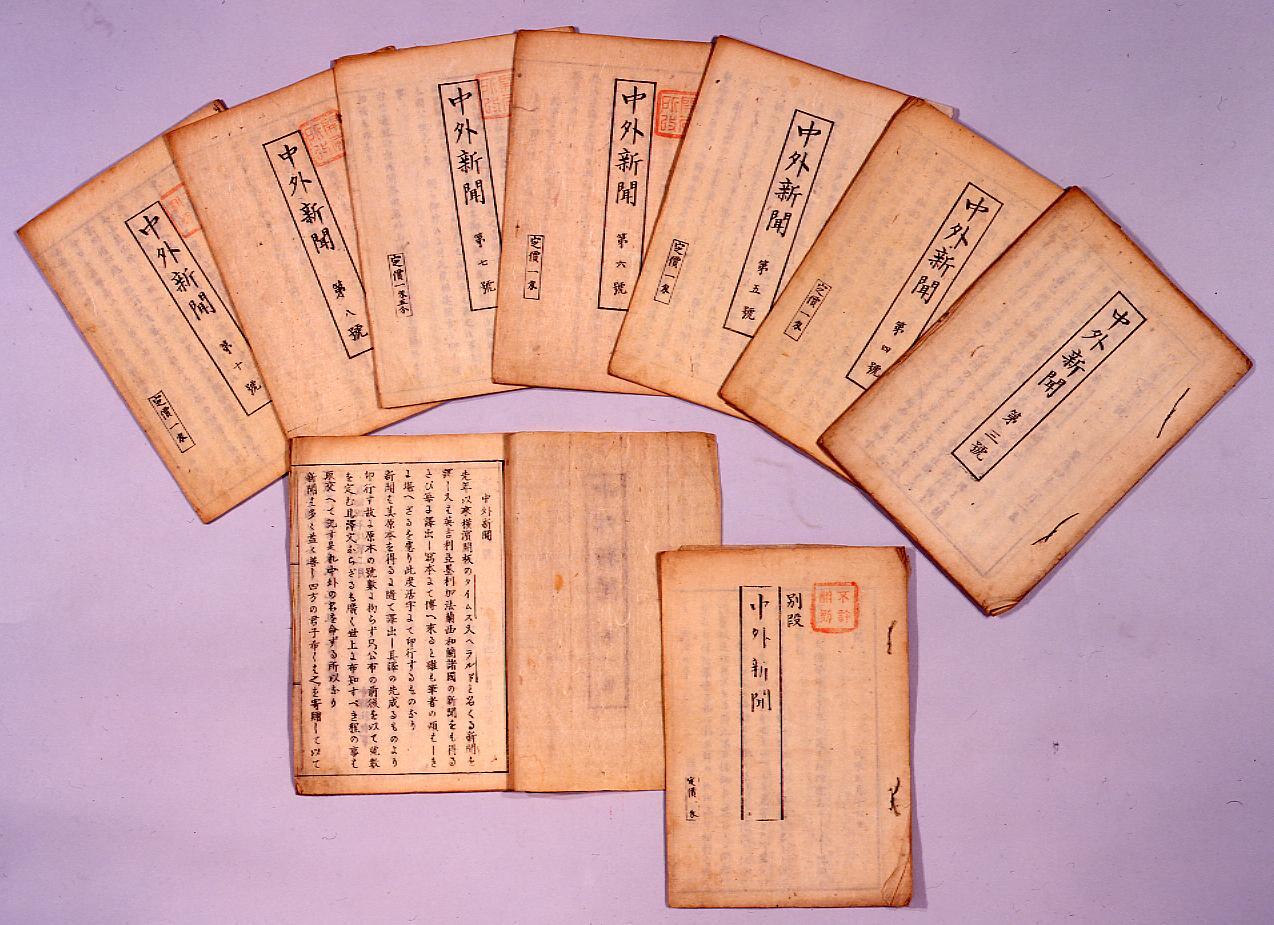 中外新聞 第十號
定價一朱
中外新聞 第八號
中外新聞 第七號
定價一朱五分
中外新聞 第六號
定價一朱
中外新聞 第五號
定價一朱
中外新聞 第四號
定價一朱
中外新聞 第三號
中外新聞
先年以來横濱開板のタイムス又ヘラルドと名くる新聞を
譯し又は英吉利亞墨利加法蘭西和蘭諸國の新聞をも得る
たび毎に譯出し寫本にて傳へ來ると雖も筆者の煩はしき
に堪へざるを患り此度活字にて印行するものなり
新聞は其原本を得るに隨て譯出し其譯の先成るものより
印行す故に原本の號數に拘らず乃公布の前後を以て號數
を定む且譯文ならざるも廣く世上に布知すべき程の事も
取交へて記す是れ中外の名を命ずる所以なり
新聞は多く益々善し四方の君子希くは之を寄贈して以て
不許翻刻
別段
中外新聞
定價一朱